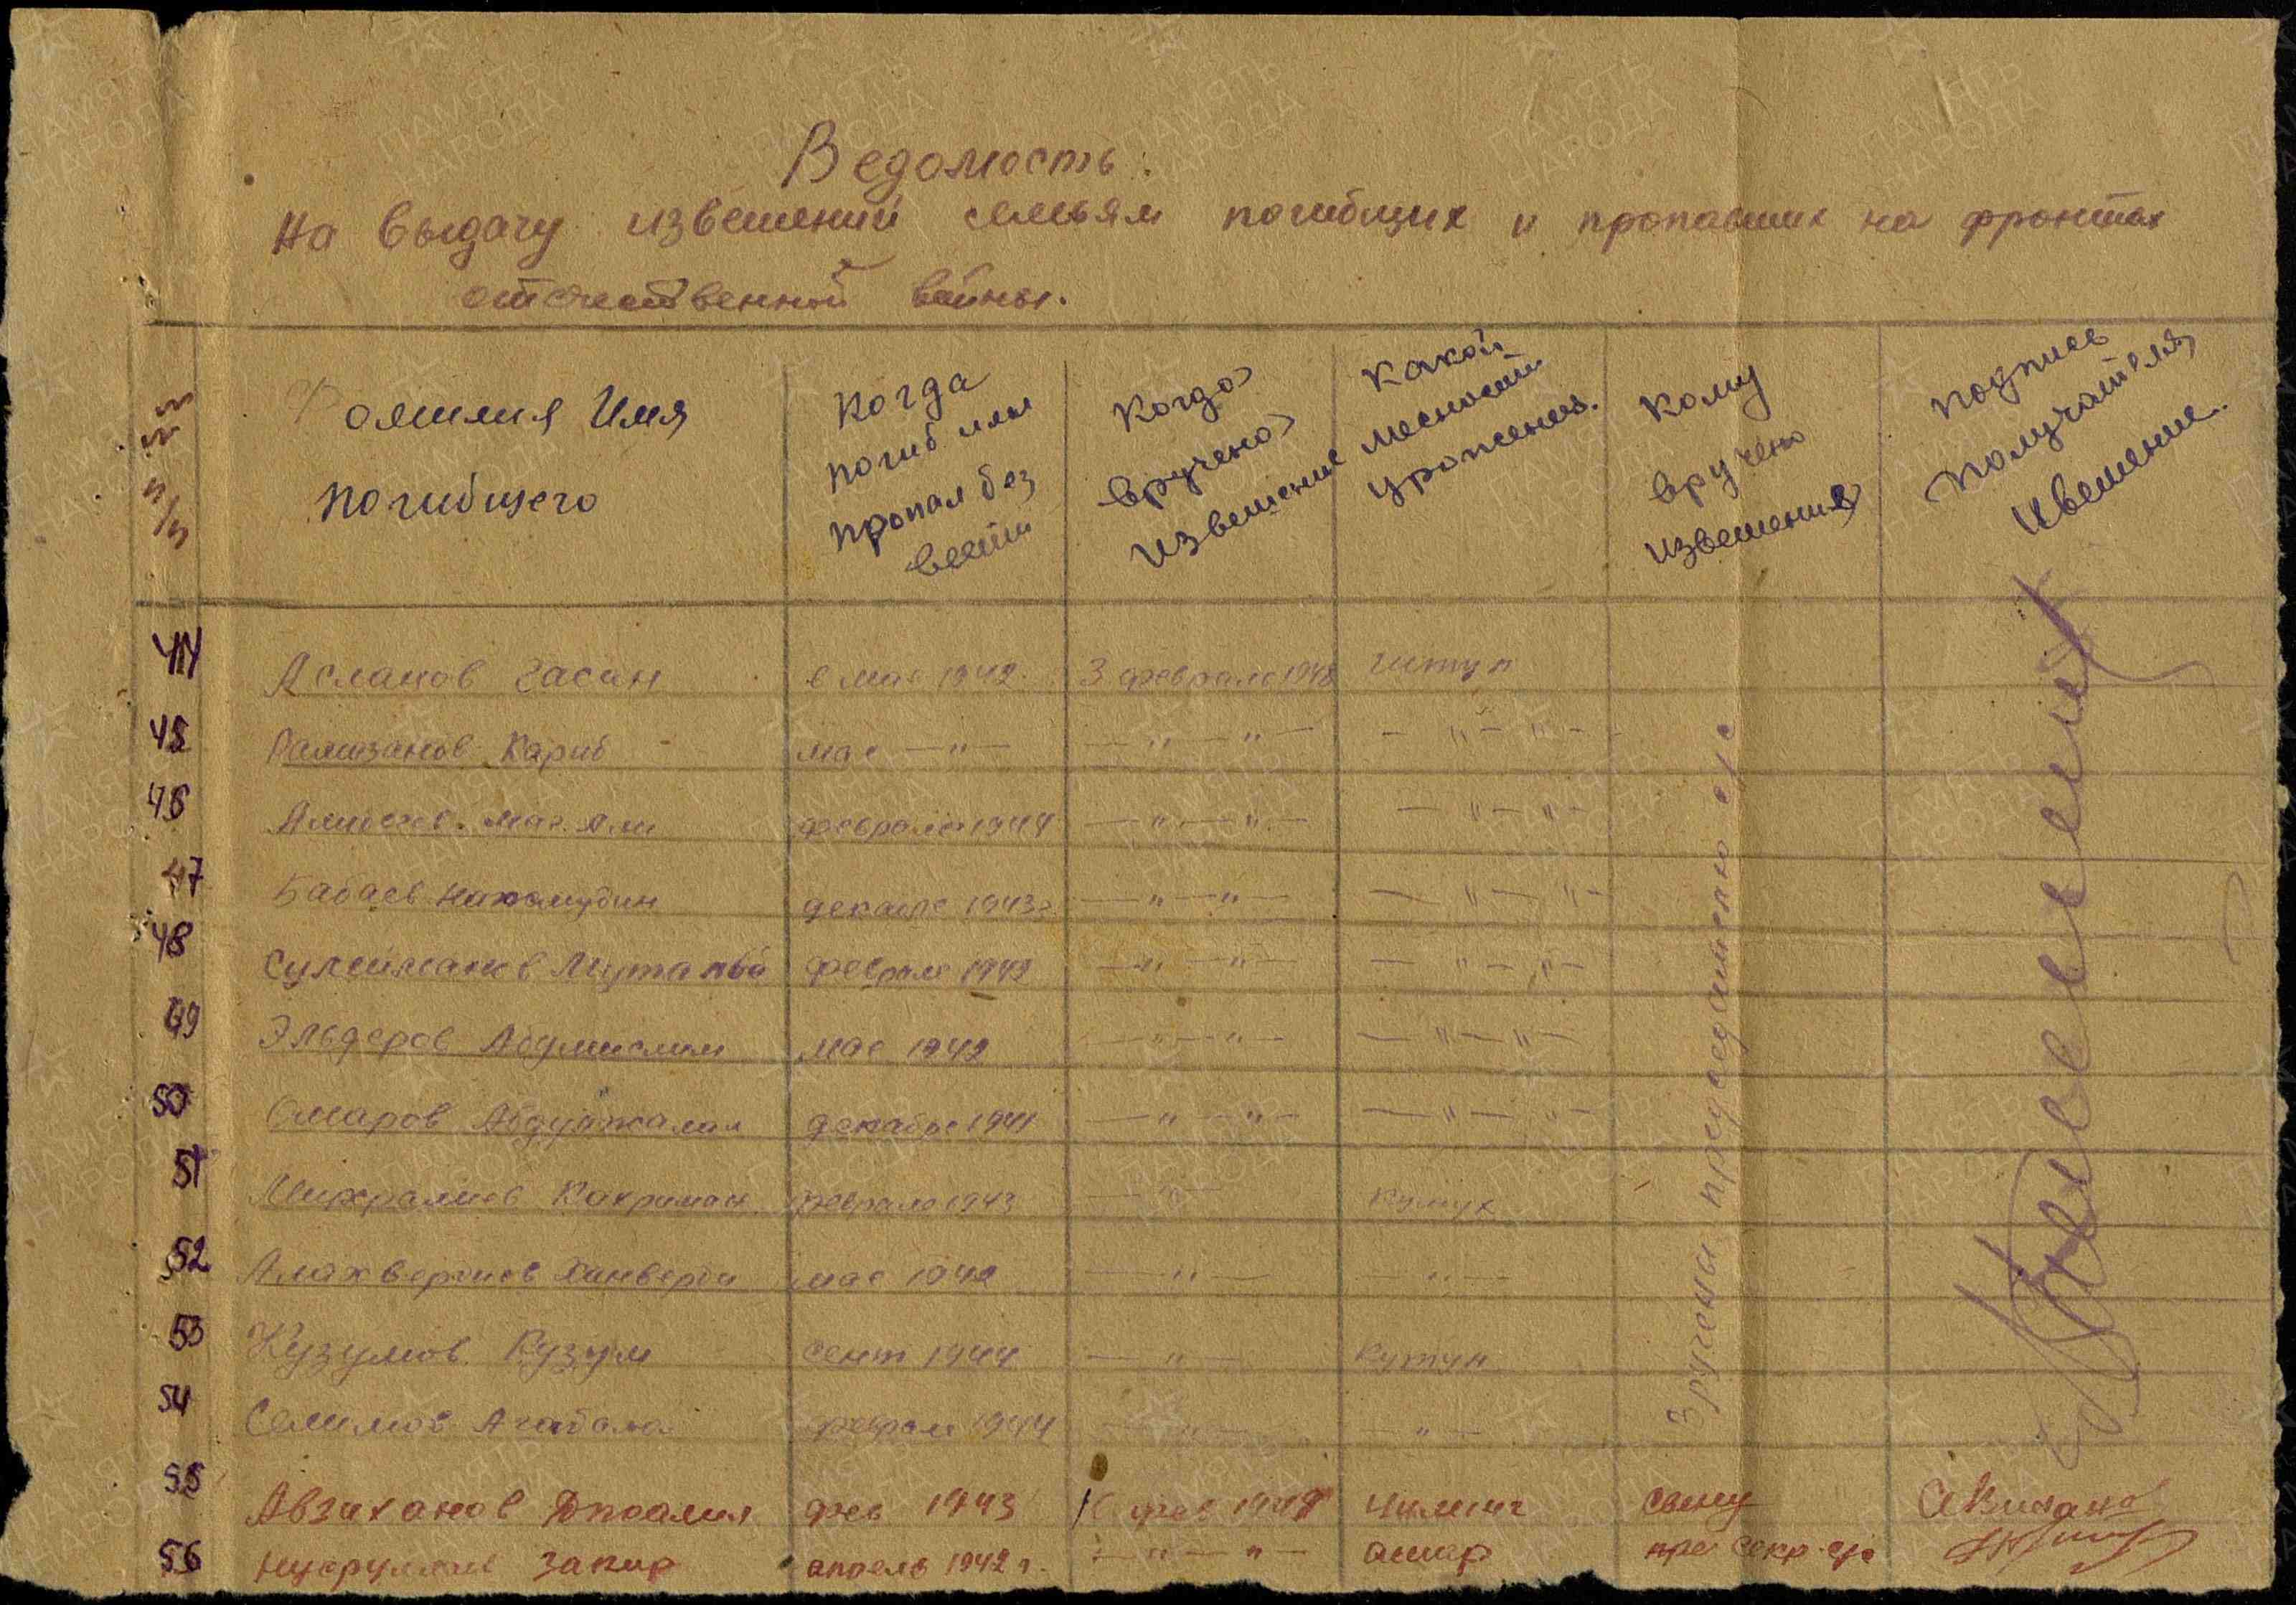 Ведомость.
На выдачу извешений семьям погибщих и пропавших на фронтах
отечественной войны.
№№ п/п
Фамилия Имя
погибщего
Когда
погиб или
пропал без
вести
Когда
вручено
извешение
Какой
месности
уроженец.
Кому
вручено
извешения
подпись
получателя
Ивешение.
44 Асланов Гасан в мае 1942 3 феврале 1948 Штул
45 Рамазанов Кариб мае —"— —"—"— —"—"—
46 Алибеев Маг.Али феврале 1944 —"—"— —"—"—
47 Бабаев Нажмудин декабре 1943г —"—"— —"—"—
48 Сулейманов Муталиб феврале 1942 —"—"— —"—"—
49 Эльдеров Абумислим мае 1942 —"—"— —"—"—
50 Омаров Абдулжалил декабре 1941 —"—"— —"—"—
51 Михралиев Кахриман феврале 1943 —"— Кумух
52 Алахвердиев Ханверди мае 1942 —"— —"—
53 Кузумов Кузум сент 1944 —"— Кутул
54 Селимов Агабала феврале 1944 —"— —"—
Вручены председателю с/с
55 Авзаханов фев 1943 фев 1948 сыну
56 Закир апрель 1942 г. —"—"— Ашар секр. с/с